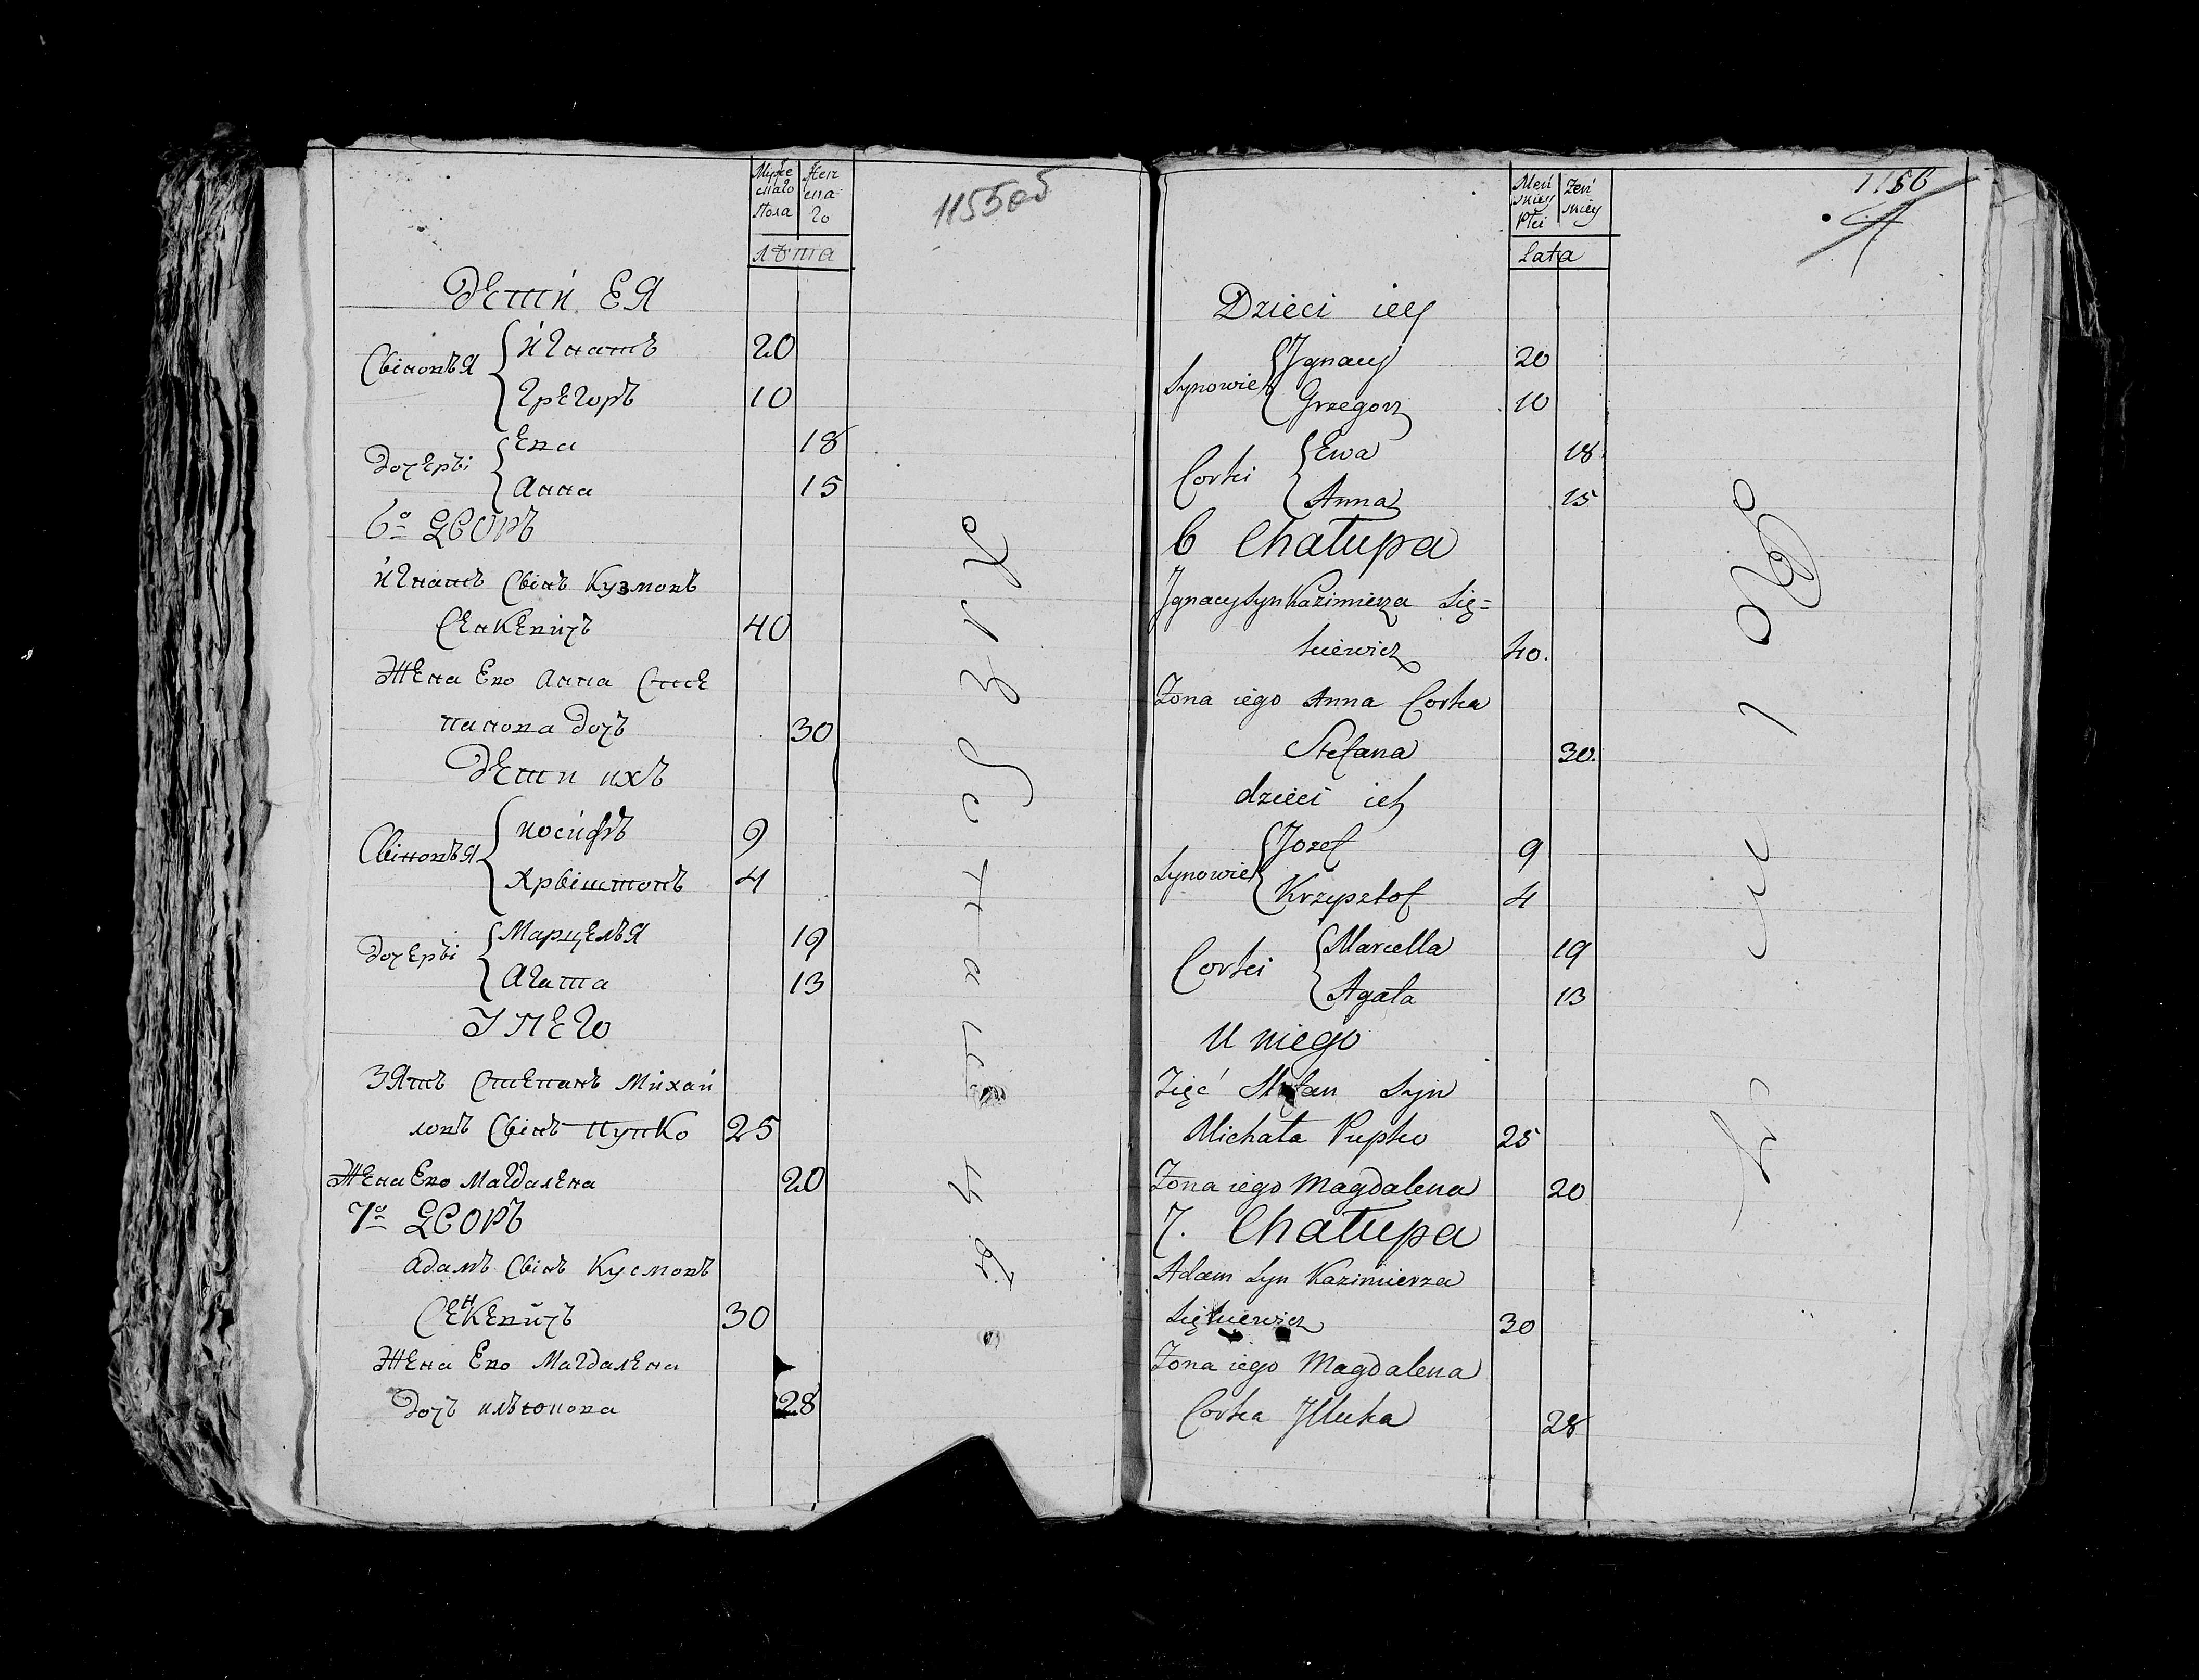 Мужескаго Пола
Женскаго
лѣта
1155 об
Дети ея
Сыновья
Игнатъ 20
Грегоръ 10
Дочеры
Ева 18
Анна 15
6о Дворъ
Игнатъ Сынъ Кузмовъ
Сенкевичъ 40
Жена Ево Анна Сте
панова Дочъ 30
Дети ихъ
Сыновья
иосифъ 9
Хрыштопъ 4
Дочеры
Марцелья 19
Агата 13
У него
Зять Степанъ Михай
ловъ Сынъ Пупко 25
Жена Ево Магдалена 20
7о Дворъ
Адамъ Сынъ Кусмовъ
Сенкевичъ 30
Жена Ево Магдалена
Дочъ 28
1156
Męskiey Płci
Zeńskiey
Lata
Dzieci iey
Synowie
Jgnacy 20
Grzegorz 10
Corki
Ewa 18
Anna 15
6 Chałupa
Jgnacy Syn Kazimierza Się=
kiewicz 40.
Zona iego Anna Corka
Stefana 30.
dzieci ich
Synowie
Jozef 9
Krzysztof 4
Corki
Marcella 19
Agata 13
U niego
Zięć Stefan Syn
Michała Pupko 25
Zona iego Magdalena 20
7. Chałupa
Adam Syn Kazimierza
Siękiewicz 30
Zona iego Magdalena
Corka 28